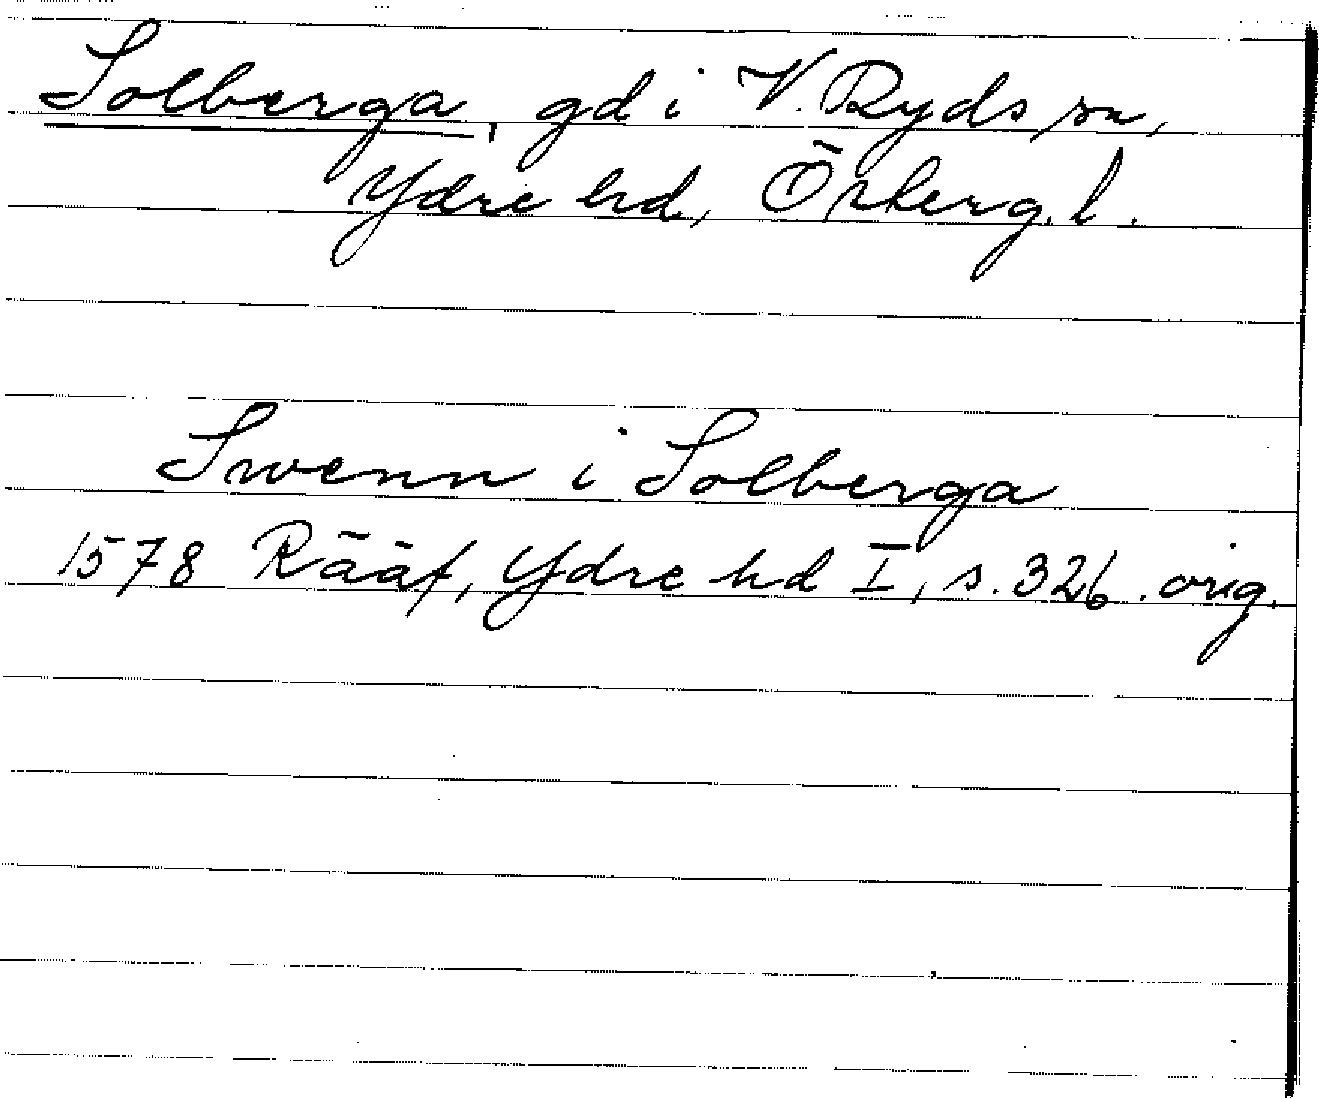 Solberga, gd i V. Ryds sn,
Ydre hd, Österg. l.
Swenn i Solberga
1578 Rääf, Ydre hd I, s. 326. orig.